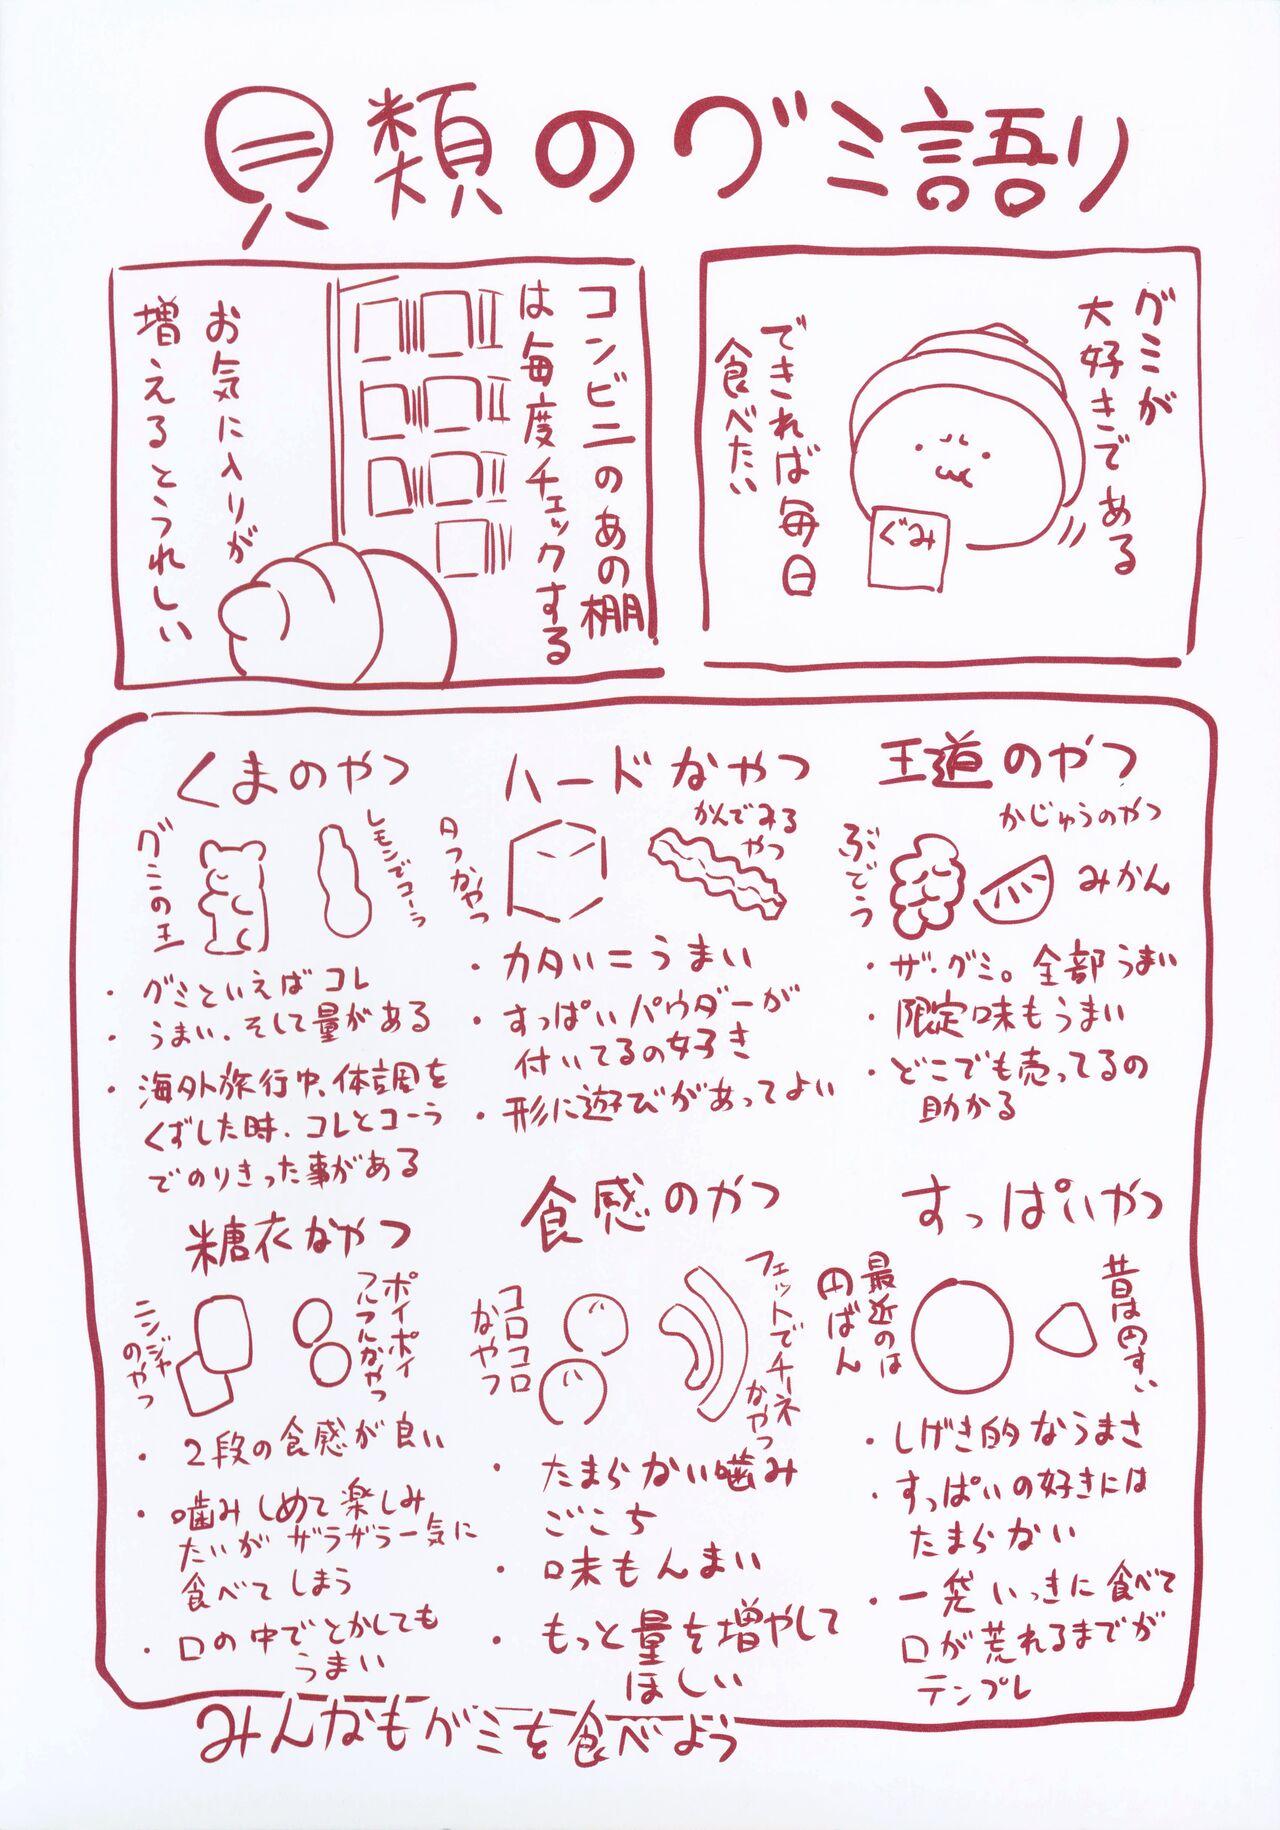 貝類のグミ語り
グミが
大好きである
ぐみ
できれば毎日
食べたい
コンビニのあの棚
は毎度チェックする
お気に入りが
増えるとうれしい
王道のやつ
かじゅうのやつ
ぶどう
みかん
・ザ・グミ。全部うまい
・限定味もうまい
・どこでも売ってるの
助かる
ハードなやつ
かんでみる
やつ
・カタい＝うまい
・すっぱいパウダーが
付いてるの好き
・形に遊びがあってよい
くまのやつ
レモンでコーラ
グミの王
・グミといえばコレ
・うまい、そして量がある
・海外旅行中、体調を
くずした時、コレとコーラ
でのりきった事がある
すっぱいやつ
最近のは
円ばん
・しげき的なうまさ
・すっぱいの好きには
たまらない
・一袋いっきに食べて
口が荒れるまでが
テンプレ
食感のやつ
フェットでチーネ
なやつ
コロコロ
なやつ
・たまらない噛み
ごこち
・味もんまい
・もっと量を増やして
ほしい
糖衣なやつ
ポイポイ
ニンジャ
のやつ
・2段の食感が良い
・噛みしめて楽しみ
たいがザラザラ一気に
食べてしまう
・口の中でとかしても
うまい
みんなもグミを食べよう